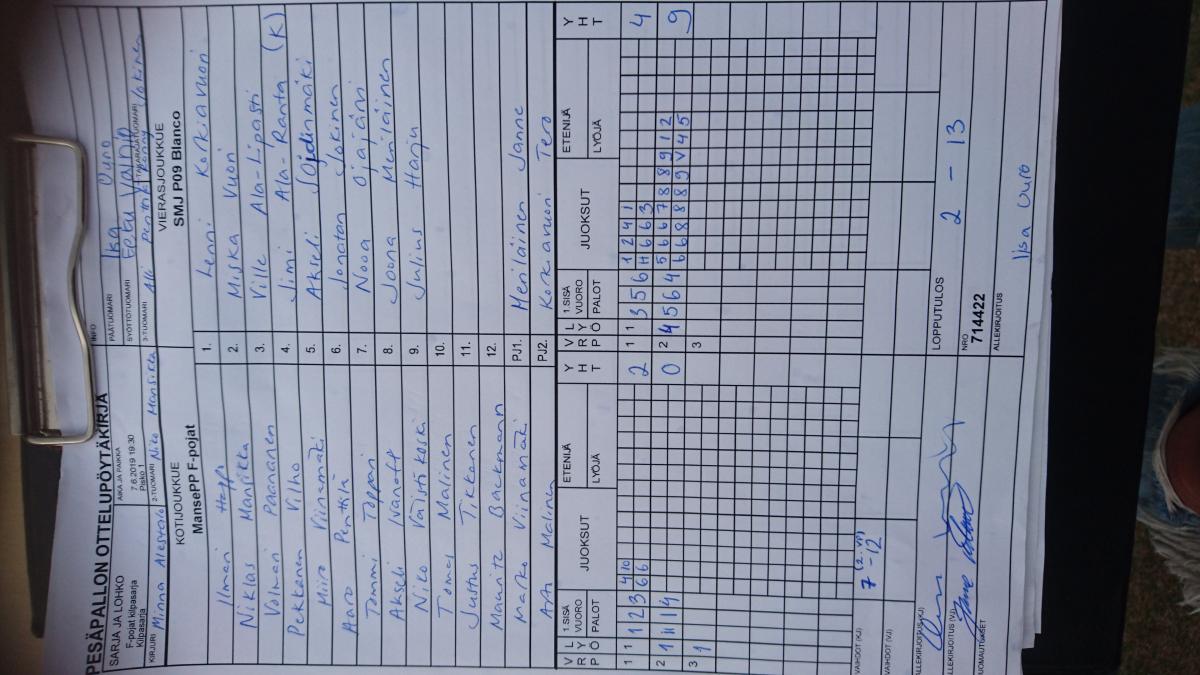 PESÄPALLON OTTELUPÖYTÄKIRJA
SARJA JA LOHKO
F-pojat kilpasarja
Kilpasarja
AIKA JA PAIKKA
7.6.2019 19:30
Pisko 1
INFO
PÄÄTUOMARI
SYÖTTÖTUOMARI
TAKARAJATUOMARI
KIRJURI Minna
2-TUOMARI Niko Mansikka
3-TUOMARI
KOTIJOUKKUE
MansePP F-pojat
VIERASJOUKKUE
SMJ P09 Blanco
Ilmari 1. Lenni Korkiavuori
Niklas Mansikka 2. Miska Vuori
Volmari Paananen 3. Ville Ala-Lipasti
Pekkanen Vilho 4. Jimi Ala-Ranta (K)
Miiro Viinamäki 5. Akseli
Aaro Penttilä 6. Jonatan Jokinen
Tommi Toppari 7. Nooa Ojajärvi
Akseli Ivanoff 8. Joona Meriläinen
Niko Väistökoski 9. Julius Harju
Tomas Malinen 10.
Justus Tikkanen 11.
Mauritz Backmann 12.
Marko Viinamäki PJ1. Meriläinen Janne
Malinen PJ2. Korkiavuori Tero
V R P L Y Ö 1.SISÄ VUORO PALOT JUOKSUT ETENIJÄ LYÖJÄ Y H T
V R P L Y Ö 1.SISÄ VUORO PALOT JUOKSUT ETENIJÄ LYÖJÄ Y H T
1 1 1 2 3 4 10 2
6 6 6
1 1 3 5 6 1 2 4 1 4
H 6 6 3
2 1 11 1 4 0
2 4 5 6 4 5 6 6 7 8 8 9 1 2 9
6 6 8 8 8 9 V 4 5
3 1
3
VAIHDOT (KJ) 7 (2.vp) -12
VAIHDOT (VJ)
LOPPUTULOS 2 - 13
ALLEKIRJOITUS (KJ)
ALLEKIRJOITUS (VJ)
NRO
714422
HUOMAUTUKSET
ALLEKIRJOITUS
Iisa Uuro